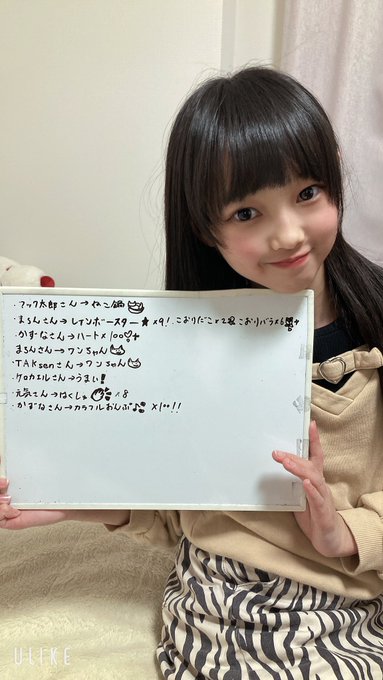 ・フック太郎さん→ねこ鍋
・まろんさん→レインボースター★×9!、こおりだこ×2、こおりバラ×6
・かずなさん→ハート×100♡
まろんさん→ワンちゃん
・TAKsenさん→ワンちゃん
・ケロカエルさん→うまい!
・元気さん→はくしゅ ×8
・かずねさん→カラフルおんぷ♪×100!!
ULIKE